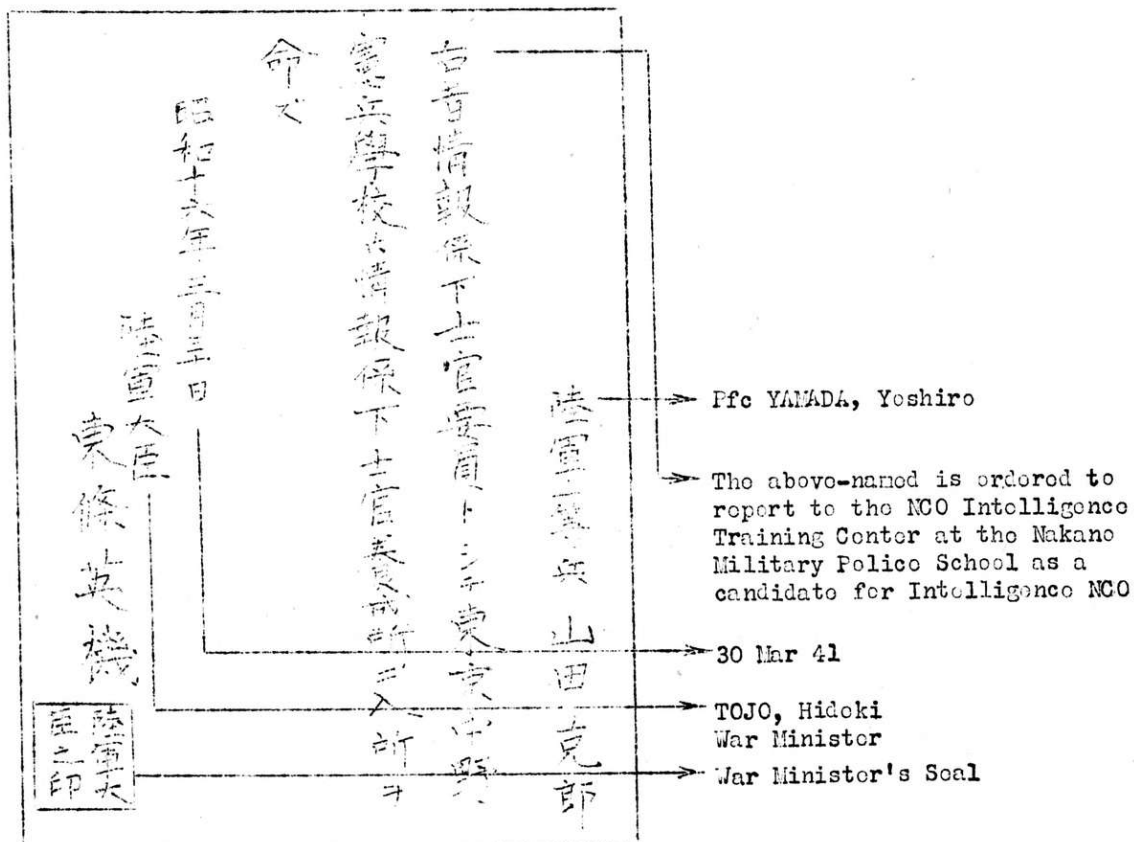 陸軍 兵 山田克郎
右者情報係下士官要員トシテ東京中野
憲兵學校内情報係下士官養成所ニ入所ヲ
命ズ
昭和十六年三月三十日
陸軍大臣
東條英機
陸軍大
臣之印
Pfc YAMADA, Yoshiro
The above-named is ordered to
report to the NCO Intelligence
Training Center at the Nakano
Military Police School as a
candidate for Intelligence NCO
30 Mar 41
TOJO, Hideki
War Minister
War Minister's Seal